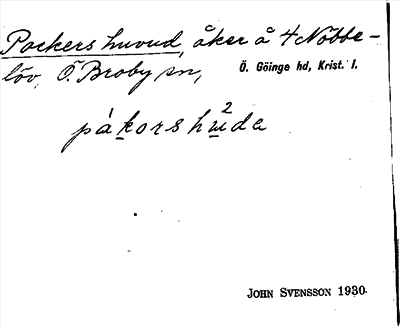 Pockers huvud, åker å 4 Nöbbe-
löv, Ö. Broby sn, Ö. Göinge hd, Krist. l.
påkorshu²da
JOHN SVENSSON 1930.